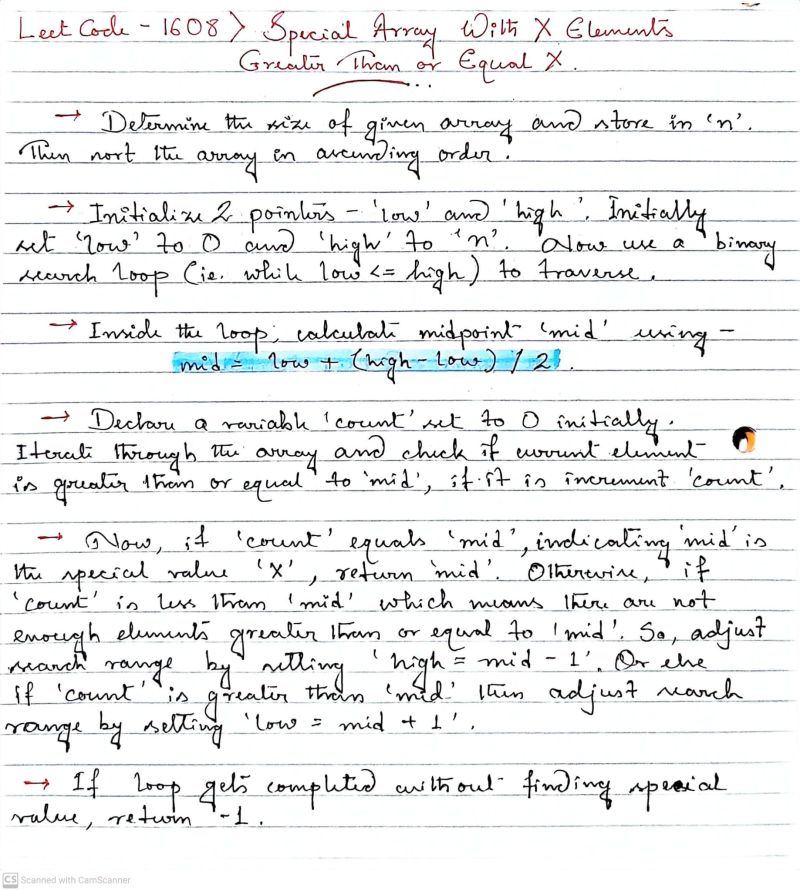 Leet Code - 1608 > Special Array With X Elements
Greater Than or Equal X.
→ Determine the size of given array and store in 'n'.
Then sort the array in ascending order.
→ Initialize 2 pointers - 'low' and 'high'. Initially
set 'low' to 0 and 'high' to 'n'. Now use a binary
search loop (ie. while low <= high) to traverse.
→ Inside the loop, calculate midpoint 'mid' using -
mid = low + (high - low) / 2.
→ Declare a variable 'count' set to 0 initially.
Iterate through the array and check if current element
is greater than or equal to 'mid', if it is increment 'count'.
→ Now, if 'count' equals 'mid', indicating 'mid' is
the special value 'X', return 'mid'. Otherwise, if
'count' is less than 'mid' which means there are not
enough elements greater than or equal to 'mid'. So, adjust
search range by setting 'high = mid - 1'. Or else
if 'count' is greater than 'mid' then adjust search
range by setting 'low = mid + 1'.
→ If loop gets completed without finding special
value, return -1.
CS Scanned with CamScanner